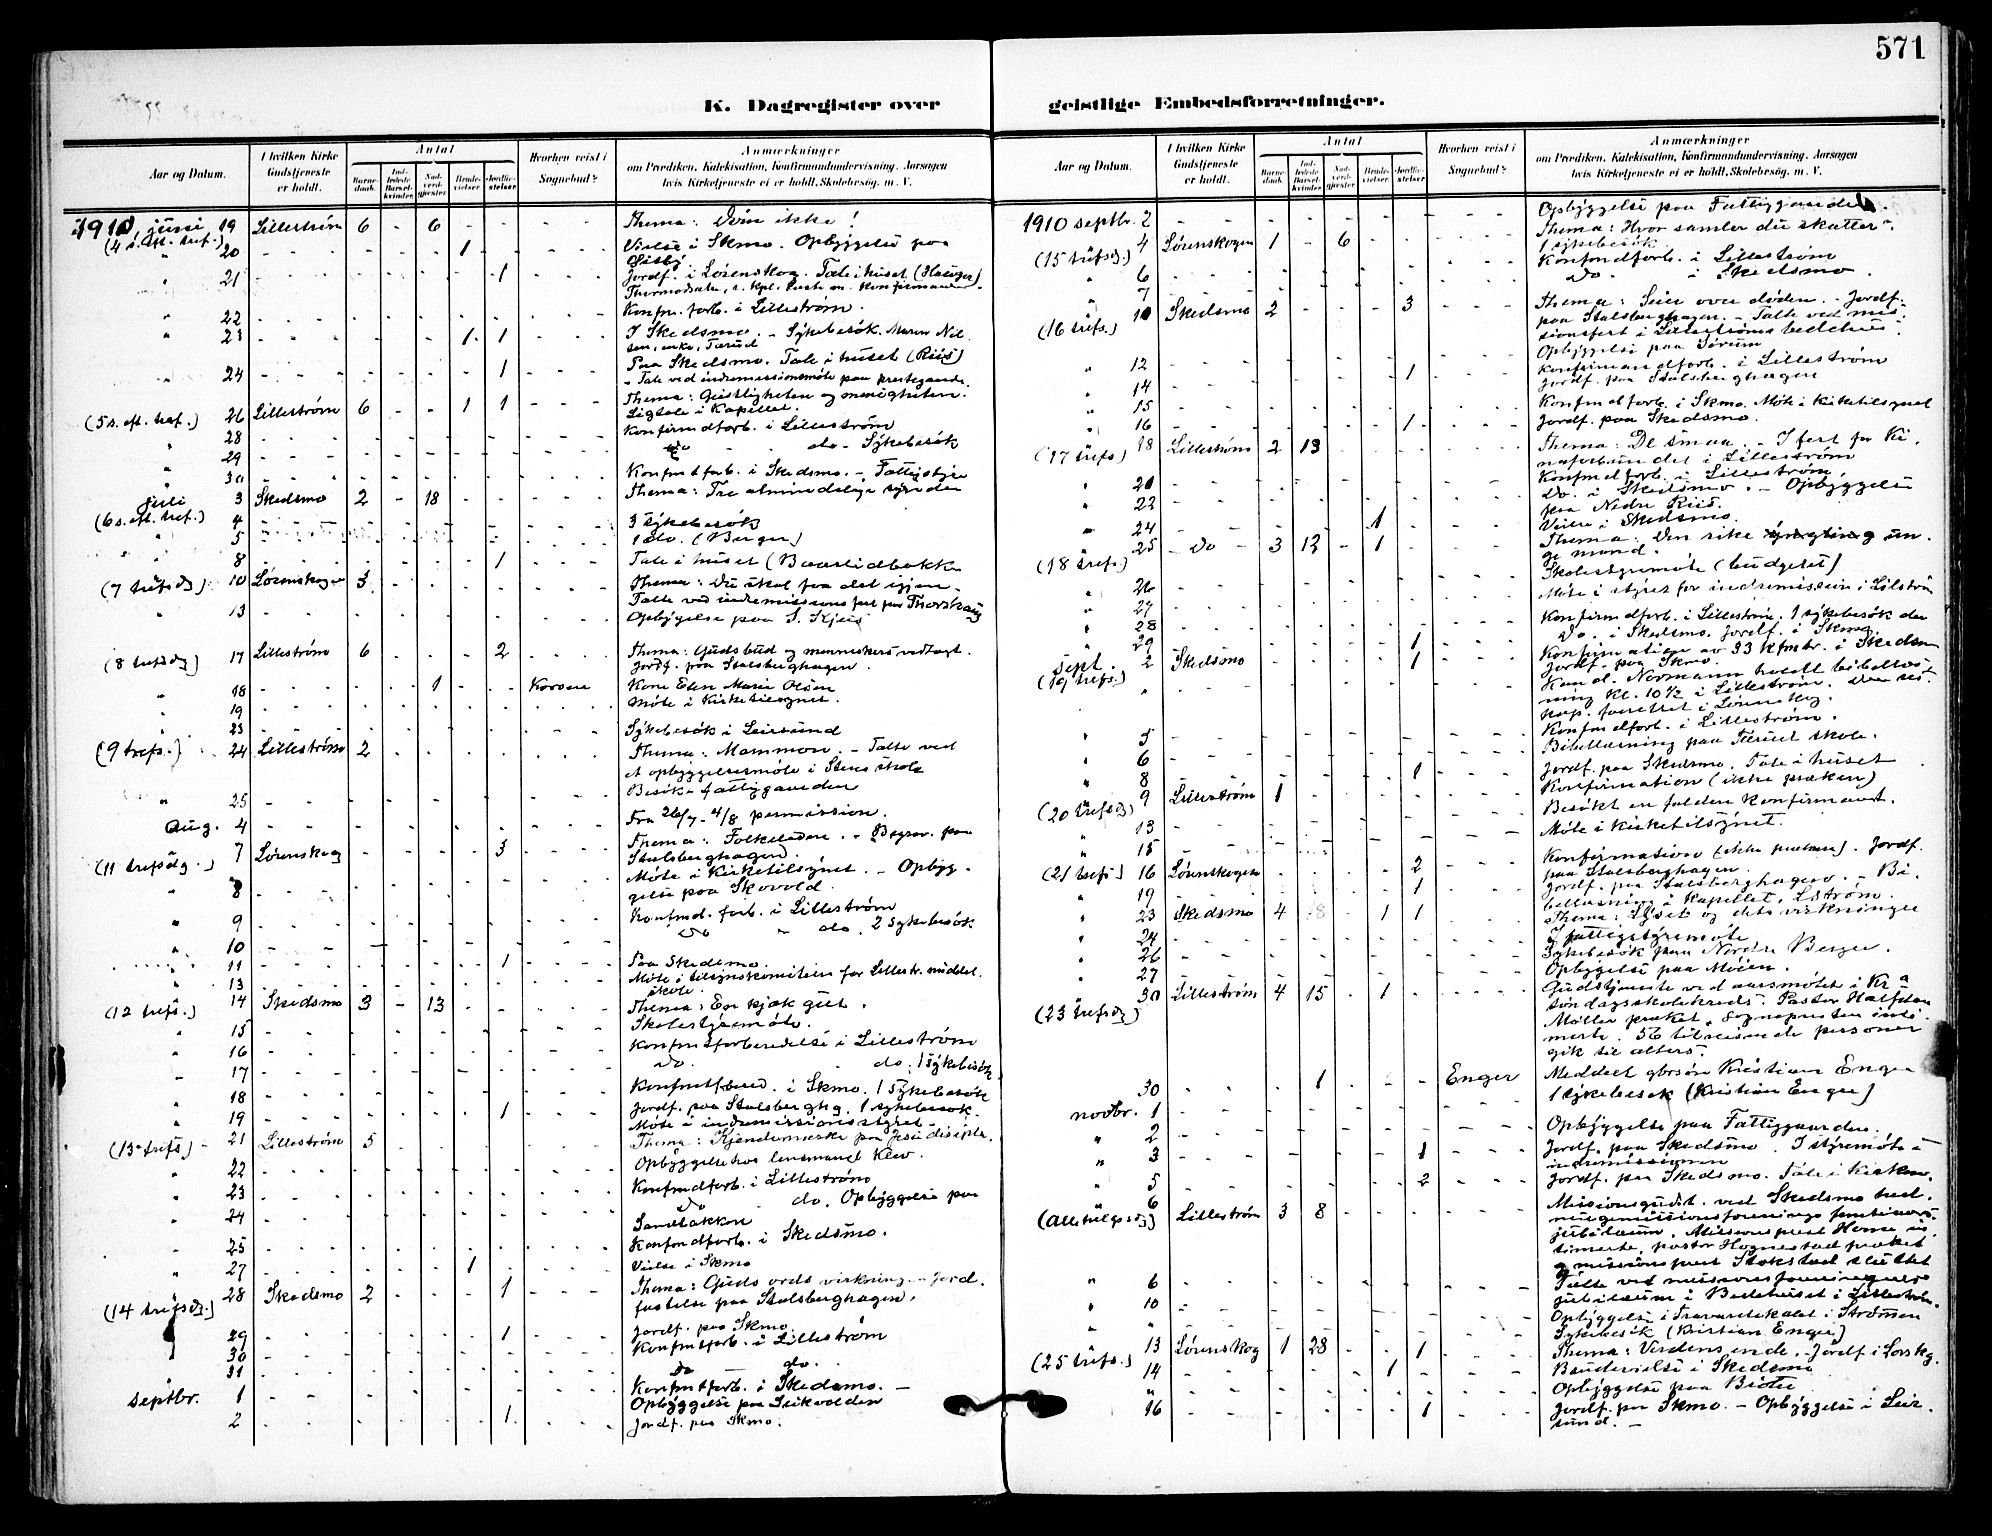 571
K. Dagregister over geistlige Embedsforretninger.
Aar og Datum. I hvilken Kirke Gudstjeneste er holdt. Antal Barnedaab. Indledede Barselkvinder. Nadverdgjester Brudevielser Jordfæstelser Hvorhen reist i Sognebud? Anmærkninger om Prædiken, Katekisation, Konfirmandundervisning, Aarsagen hvis Kirketjeneste ei er holdt, Skolebesøg. m. V.
1910, juni 19 Lillestrøm 6 - 6 - - Thema: Døm ikke!
(4 s. eft. tref.)
" 20 1 Vielse i Skmo. Opbyggelse paa
" 21 1 Jordf. i Lørenskog. Tale i huset
" 22 Konfm. forb. i Lillestrøm.
" 23 1 1 I Skedsmo. - Sykebesök.
" 24 1 Paa Skedsmo. Tale i huset (Riis)
- Tale ved indremissionsmöte paa prestegaarde.
(5 s. eft. tref.) 26 Lillestrøm 6 - - 1 1 Thema: Geistligheten og menigheten.
Ligtale i Kapellet.
28 Konfirmdforb. i Lillestrøm
" 29 Do do - Sykebesök
" 30 Konfmtforb. i Skedsmo. - Fattigstyre
juli 3 Skedsmo 2 - 18 Thema: Tre almindelige synder
(6 s. eft. tref.) 4 3 sykebesök
" 5 1 do. (Berger)
" 8 1 Tale i huset
(7 trefsdg) 10 Lørenskogen 3 Thema: Du skal faa det igjen.
Talte ved indremissionsfest paa
" 13 Opbyggelse paa S.
(8 trefsdg) 17 Lillestrøm 6 2 Thema: Guds bud og menneskers vedtægt.
Jordf. paa Stalsberghagen.
" 18 1 Kone Elen Marie Olsen
" 19 Möte i Kirketilsynet.
" 23 Sykebesök i Leirsund
(9 trefs.) 24 Lillestrøm 2 Thema: Mammon. - Talte ved
et opbyggelsesmöte i Stens skole
" 25 Besök fattiggaarden
Aug. 4 Fra 26/7 - 4/8 permission.
(11 trefsdg.) 7 Lørenskog 3 Thema: Folkeledere. - Begrav. paa
Stalsberghagen.
" 8 Möte i Kirketilsynet. - Opbyg-
gelse paa Skovold.
" 9 Konfmd. forb. i Lillestrøm
" 10 Do " do. 2 sykebesök
" 11 1 Paa Skedsmo.
" 13 Möte i tilsynskomiteen for Lillestr. middel-
skole.
(12 trefs.) 14 Skedsmo 3 - 13 Thema: En kjæk gut.
" 15 Skolestyremöte.
" 16 Konfmtforberedelse i Lillestrøm
" 17 Do. do. 1 sykebesök
" 18 Konfmtforb. i Skmo. 1 sykebesök
" 19 1 Jordf. paa Stalsberghg. 1 sykebesök.
Möte i indremissionsstyret
(13 trefs) - 21 Lillestrøm 5 Thema: Kjendemerke paa Jesu disciple.
" 22 Opbyggelse hos lensmand Klev.
" 23 Konfmdforb. i Lillestrøm
" 24 Do do. Opbyggelse paa
Sandbakken
" 25 Konfmdforb. i Skedsmo.
" 27 1 Vielse i Skmo
(14 trefsdg.) 28 Skedsmo 2 1 Thema: Guds ords virkning. - Jord-
fæstelse paa Stalsberghagen.
29 1 Jordf. paa Skmo.
30 Konfmtforb. i Lillestrøm
31 Do do.
Septbr. 1 Konfmtforb. i Skedsmo. -
Opbyggelse paa
2 1 Jordf. paa Skmo.
1910 septbr. 2 Opbyggelse paa Fattiggaarden.
(15 trefsdg.) 4 Lørenskogen 1 - 6 Thema: Hvor samler du skatter?
1 sykebesök.
" 6 Konfmdforb. i Lillestrøm
" 7 Do. i Skedsmo.
(16 trefs.) 11 Skedsmo 2 3 Thema: Seier over døden. - Jordf.
paa Stalsberghagen. - Talte ved mis-
sionsfest i Lillestrøms bedehus.
" 12 Opbyggelse paa Sørum
" 14 1 Konfirmandforb. i Lillestrøm
Jordf. paa Stalsberghagen
" 15 Konfmdforb. i Skmo. Möte i kirketilsynet
" 16 1 Jordf. paa Skedsmo.
(17 trefs) 18 Lillestrøm 2 13 Thema: De smaa. - I fest for Ki-
naforbundet i Lillestrøm
" 21 Konfmdforb. i Lillestrøm
" 22 Do. i Skedsmo. - Opbyggelse
paa Nedre Riis.
" 24 1 Vielse i Skedsmo.
(18 trefs.) 25 - Do - 3 12 - 1 Thema: Den rike un-
ge mand.
" 26 Skolestyremöte (budgetet)
" 27 Möte i styret for indremissionen i Lilstrøm
" 28 Konfirmdforb. i Lillestrøm. 1 sykebesök der
" 29 1 Do. i Skedsmo. Jordf. i Skmo
Sept. 2 Skedsmo 1 Konfirmation av 33 kfmtr. i Skedsm
(19 trefs.) Jordf. paa Skmo.
" Kand. Normann holdt bibellæs-
ning kl. 10½ i Lillestrøm. Den res.
kap. forrettet i Lørenskog.
" 5 Konfmdforb. i Lillestrøm.
" 6 Bibellæsning paa Færud skole.
" 8 1 Jordf. paa Skedsmo. Tale i huset
(20 trefsdg) 9 Lillestrøm 1 Konfirmation (ikke præken)
Besökt en falden konfirmant.
" 13 Möte i kirketilsynet.
" 15
(21 trefs) 16 Lørenskogen 2 Konfirmation (ikke præken). Jordf.
paa Stalsberghagen.
" 19 1 Jordf. paa Stalsberghagen. - Bi-
bellæsning i kapellet, Lstrøm.
" 23 Skedsmo 4 18 - 1 1 Thema: Lyset og dets virkninger
" 24 I fattigstyremöte
" 26 Sykebesök paa Nordre Berger.
" 27 Opbyggelse paa Moen.
(23 trefsdg) 30 Lillestrøm 4 15 - 1 Gudstjeneste ved aarsmötet i Kra
søndagsskolekreds. Pastor Halfdan
Møller præket, sognepresten inti-
merte. 56 tilreisende personer
gik til alters.
30 1 Enger Meddelt gbrsøn Kristian Enger
novbr. 1 1 sykebesök (Kristian Enger)
" 2 Opbyggelse paa Fattiggaarden.
" 3 1 Jordf. paa Skedsmo. I styremöte i
indremissionen
" 5 2 Jordf. paa Skedsmo. Tale i Kirken.
(Allehelgsdg) 6 Lillestrøm 3 8 Missionsgudst. ved Skedsmo hed-
ningemissionsforenings
jubilæum. Missionsprest Horne in-
timerte, pastor Hognestad præket
og missionsprest Stokstad sluttet
" 6 Talte ved missionsforeningens
jubilæum i Bedehuset i Lillestrøm.
" 10 Opbyggelse i i Strømmen
" " Sykebesök (Kristian Enger)
(25 trefs.) 13 Lørenskog 1 28 1 Thema: Verdens ende. - Jordf. i Lørskg.
14 1 Brudevielse i Skedsmo
" Opbyggelse paa
16 1 Jordf. paa Skmo. - Opbyggelse i Leir-
sund. -